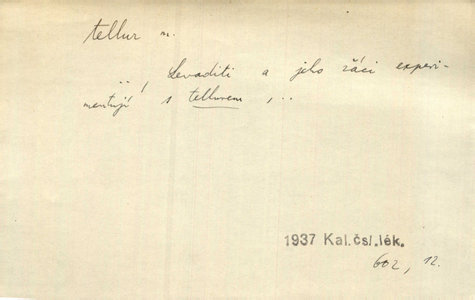 tellur n.
..., Levaditi a jeho žáci experi-
mentují s tellurem, ..
1937 Kal.čs/.lék.
602, 12.